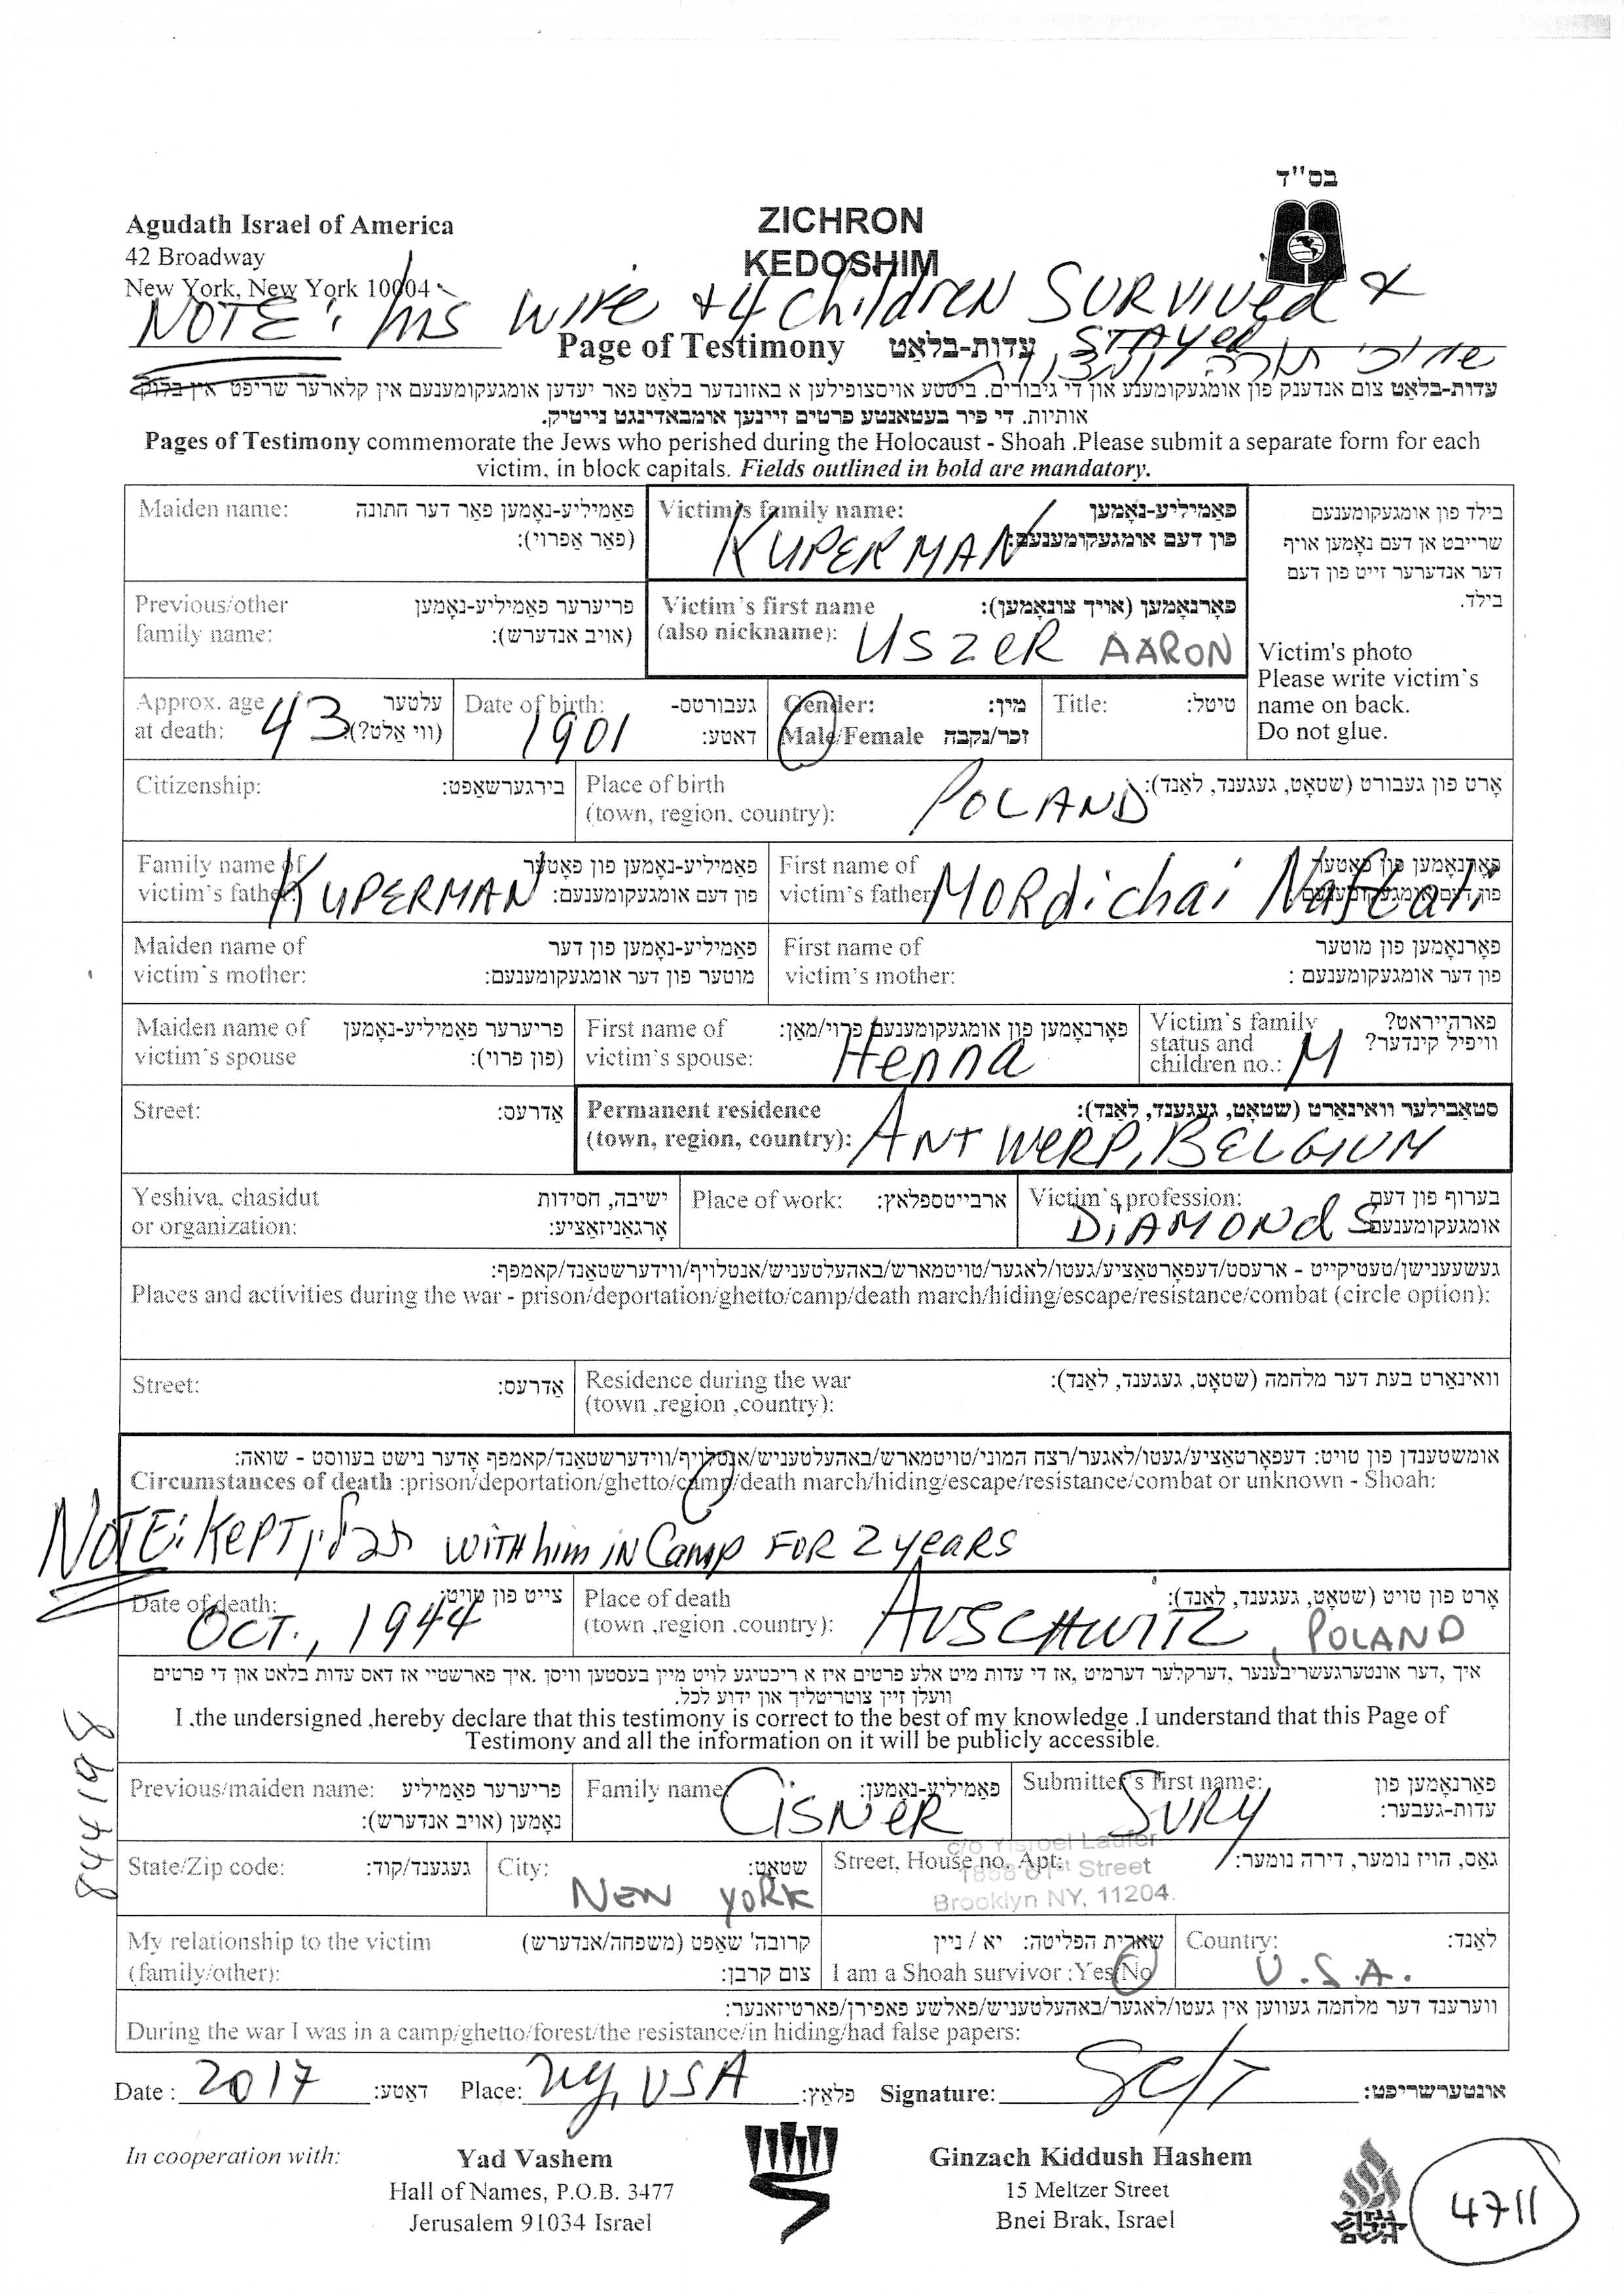 בס"ד
Agudath Israel of America
42 Broadway
New York, New York 10004
ZICHRON
KEDOSHIM
NOTE: his wife + 4 children SURVIVED +
STAYED
שומרי תורה ומצוות
Page of Testimony עדות-בלאַט
עדות-בלאַט צום אנדענק פון אומגעקומענע און די גיבורים. ביטטע אויסצופילען א באזונדער בלאט פאר יעדען אומגעקומענעם אין קלארער שריפט אין בלוק
אותיות. די פיר בעטאנטע פרטים זיינען אומבאדינגט נייטיק.
Pages of Testimony commemorate the Jews who perished during the Holocaust - Shoah .Please submit a separate form for each
victim, in block capitals. Fields outlined in bold are mandatory.
Maiden name: פאַמיליע-נאָמען פאר דער חתונה
(פאר אפרוי):
Victim's family name: פאַמיליע-נאָמען
פון דעם אומגעקומענעם:
KUPERMAN
בילד פון אומגעקומענעם
שרייבט אן דעם נאָמען אויף
דער אנדערער זייט פון דעם
בילד.
Victim's photo
Please write victim`s
name on back.
Do not glue.
Previous/other פריערער פאַמיליע-נאָמען
family name: (אויב אנדערש):
Victim's first name פאָרנאָמען (אויך צונאָמען):
(also nickname): USZER AARON
Approx. age עלטער
at death: 43 (ווי אַלט?)
Date of birth: געבורטס-
דאטע: 1901
Gender: מין:
Male/Female זכר/נקבה
Title: טיטל:
Citizenship: בירגערשאַפט:
Place of birth אָרט פון געבורט (שטאָט, געגענד, לאַנד):
(town, region, country): POLAND
Family name of פאַמיליע-נאָמען פון פאָטער
victim's father: פון דעם אומגעקומענעם:
KUPERMAN
First name of פאָרנאָמען פון פאָטער
victim's father: פון דעם אומגעקומענעם
MORdichai Naftali
Maiden name of פאַמיליע-נאָמען פון דער
victim`s mother: מוטער פון דער אומגעקומענעם:
First name of פאָרנאָמען פון מוטער
victim`s mother: פון דער אומגעקומענעם :
Maiden name of פריערער פאַמיליע-נאָמען
victim`s spouse (פון פרוי):
First name of פאָרנאָמען פון אומגעקומענעם פרוי/מאַן:
victim`s spouse: Henna
Victim`s family פארהייראט?
status and וויפיל קינדער?
children no.: M
Street: אַדרעס:
Permanent residence סטאַבילער וואוינאָרט (שטאָט, געגענד, לאַנד):
(town, region, country): ANTWERP, BELGIUM
Yeshiva, chasidut ישיבה, חסידות
or organization: אָרגאַניזאַציע:
Place of work: ארבייטספלאַץ:
Victim`s profession: בערוף פון דעם
אומגעקומענעם
DiAMONdS
געשעענישן/טעטיקייט - ארעסט/דעפּאָרטאַציע/געטו/לאגער/טויטמארש/באהעלטעניש/אנטלויף/ווידערשטאַנד/קאמפף:
Places and activities during the war - prison/deportation/ghetto/camp/death march/hiding/escape/resistance/combat (circle option):
Street: אַדרעס:
Residence during the war וואוינאָרט בעת דער מלחמה (שטאָט, געגענד, לאַנד):
(town ,region ,country):
אומשטענדן פון טויט: דעפאָרטאַציע/געטו/לאגער/רצח המוני/טויטמארש/באהעלטעניש/אנטלויף/ווידערשטאנד/קאמפף אָדער נישט בעוווסט - שואה:
Circumstances of death :prison/deportation/ghetto/camp/death march/hiding/escape/resistance/combat or unknown - Shoah:
NOTE: KEPT תפילין WITH him IN Camp FOR 2 years
Date of death: צייט פון טויט:
OCT., 1944
Place of death אָרט פון טויט (שטאָט, געגענד, לאַנד):
(town ,region ,country): AUSCHWITZ, POLAND
איך ,דער אונטערגעשריבענער ,דערקלער דערמיט ,אז די עדות מיט אלע פרטים איז א ריכטיגע לויט מיין בעסטען וויסן .איך פארשטיי אז דאס עדות בלאט און די פרטים
וועלן זיין צוטריטליך און ידוע לכל.
I ,the undersigned ,hereby declare that this testimony is correct to the best of my knowledge .I understand that this Page of
Testimony and all the information on it will be publicly accessible.
8448198
Previous/maiden name: פריערער פאַמיליע
נאָמען (אויב אנדערש):
Family name: פאַמיליע-נאָמען:
CISNER
Submitter`s first name: פאָרנאָמען פון
עדות-געבער:
SURY
State/Zip code: געגענד/קוד:
City: שטאָט:
NEW YORK
Street, House no. Apt: גאַס, הויז נומער, דירה נומער:
c/o Yisroel Laufer
1858 61st Street
Brooklyn NY, 11204.
My relationship to the victim קרובה' שאַפט (משפחה/אנדערש)
(family/other): צום קרבן:
שארית הפליטה: יא / ניין
I am a Shoah survivor :Yes/No
Country: לאַנד:
U.S.A.
ווערענד דער מלחמה געווען אין געטו/לאגער/באהעלטעניש/פאלשע פאפירן/פארטיזאנער:
During the war I was in a camp/ghetto/forest/the resistance/in hiding/had false papers:
Date : 2017 דאטע: Place: NY, USA פלאַץ: Signature: אונטערשריפט:
In cooperation with:
Yad Vashem
Hall of Names, P.O.B. 3477
Jerusalem 91034 Israel
Ginzach Kiddush Hashem
15 Meltzer Street
Bnei Brak, Israel
4711